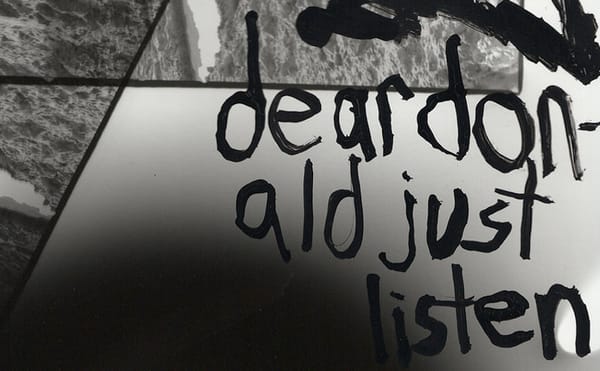 deardon-
ald just
listen